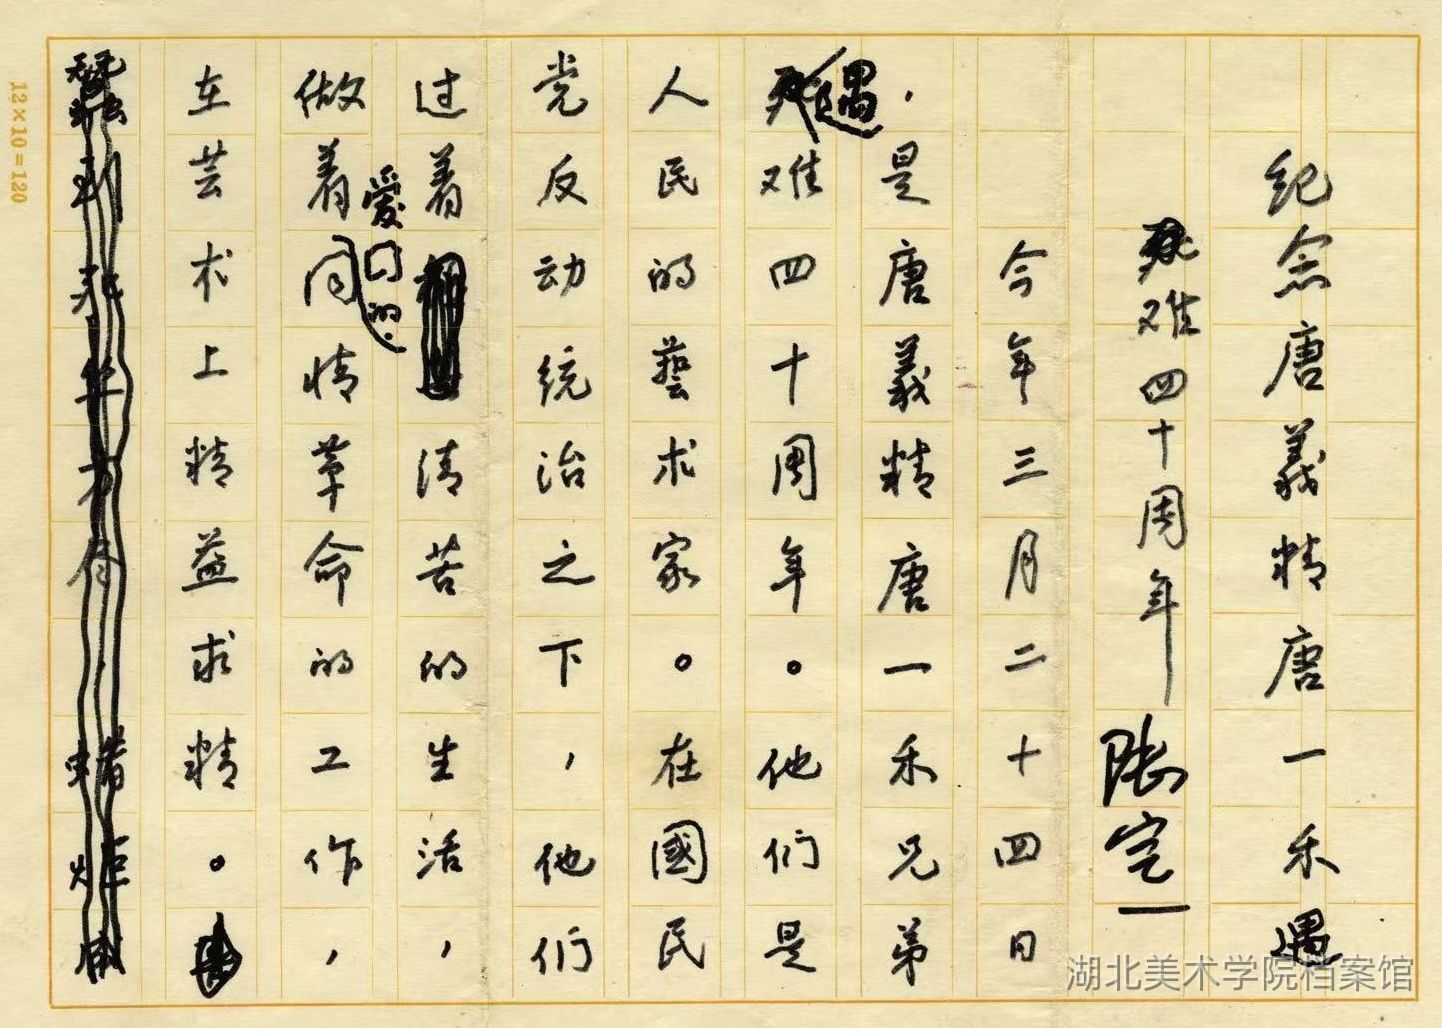 纪念唐義精唐一禾遇
难四十周年 张定一
今年三月二十四日
，是唐義精唐一禾兄弟
遇难四十周年。他们是
人民的藝术家。在國民
党反动统治之下，他们
过着清苦的生活，
做着同情革命的工作，
愛国的。
在芸术上精益求精。
12×10=120
湖北美术学院档案馆